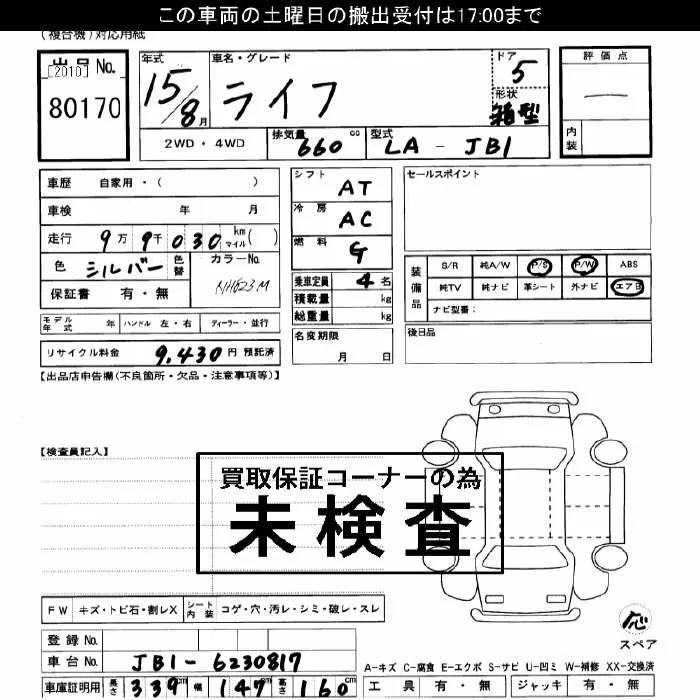 この車両の土曜日の搬出受付は17:00まで
(複合機)対応用紙
出品 No.
[2010]
80170
年式
15/8月
車名・グレード
ライフ
ドア
5
形状
箱型
評価点
内装
2WD・4WD
排気量
660 cc
型式
LA - JB1
車歴 自家用・( )
車検 年 月
走行 9万9千030 km マイル( )
色 シルバー 色替
カラーNo.
NH623M
保証書 有・無
モデル年式 年 ハンドル 左・右 ディーラー・並行
リサイクル料金 9,430 円 預託済
シフト AT
冷房 AC
燃料 G
乗車定員 4名
積載量 kg
総重量 kg
名変期限
月 日
セールスポイント
装備品
S/R 純A/W P/S P/W ABS
純TV 純ナビ 革シート 外ナビ エアB
ナビ型番:
後日品
【出品店申告欄(不良箇所・欠品・注意事項等)】
【検査員記入】
買取保証コーナーの為
未検査
FW キズ・トビ石・割レX シート内装 コゲ・穴・汚レ・シミ・破レ・スレ
登録 No.
車台 No. JB1-6230817
車庫証明用 長さ 339cm 幅 147cm 高さ 160cm
応
スペア
A-キズ C-腐食 E-エクボ S-サビ U-凹ミ W-補修 XX-交換済
工具 有・無 ジャッキ 有・無